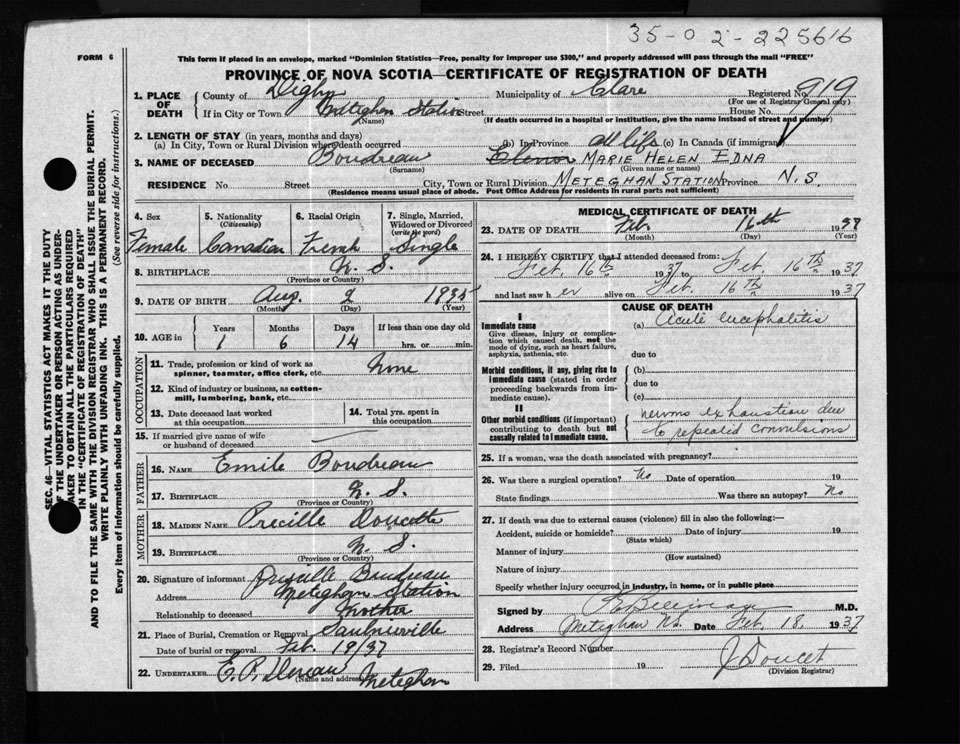 35-02-225616
FORM 6
This form if placed in an envelope, marked "Dominion Statistics—Free, penalty for improper use $300," and properly addressed will pass through the mail "FREE"
PROVINCE OF NOVA SCOTIA—CERTIFICATE OF REGISTRATION OF DEATH
1. PLACE OF DEATH County of Digby Municipality of Clare Registered No. 919
(For use of Registrar General only)
If in City or Town Meteghan Station Street House No.
(Name) (If death occurred in a hospital or institution, give the name instead of street and number)
2. LENGTH OF STAY (in years, months and days)
(a) In City, Town or Rural Division where death occurred (b) In Province all life (c) In Canada (if immigrant)
3. NAME OF DECEASED Boudreau MARIE HELEN EDNA
(Surname) (Given name or names)
RESIDENCE No Street City, Town or Rural Division METEGHAN STATION Province N.S.
(Residence means usual place of abode. Post Office Address for residents in rural parts not sufficient)
SEC. 46—VITAL STATISTICS ACT MAKES IT THE DUTY
OF THE UNDERTAKER OR PERSON ACTING AS UNDER-
TAKER TO OBTAIN ALL THE PARTICULARS REQUIRED
IN THE "CERTIFICATE OF REGISTRATION OF DEATH"
AND TO FILE THE SAME WITH THE DIVISION REGISTRAR WHO SHALL ISSUE THE BURIAL PERMIT.
WRITE PLAINLY WITH UNFADING INK. THIS IS A PERMANENT RECORD.
Every item of information should be carefully supplied. (See reverse side for instructions.)
4. Sex Female
5. Nationality (Citizenship) Canadian
6. Racial Origin French
7. Single, Married, Widowed or Divorced (write the word) Single
8. BIRTHPLACE N. S.
(Province or Country)
9. DATE OF BIRTH Aug. 2 1935
(Month) (Day) (Year)
10. AGE in Years 1 Months 6 Days 14 If less than one day old hrs. or min.
OCCUPATION
11. Trade, profession or kind of work as spinner, teamster, office clerk, etc. None
12. Kind of industry or business, as cotton-mill, lumbering, bank, etc.
13. Date deceased last worked at this occupation
14. Total yrs. spent in this occupation
15. If married give name of wife or husband of deceased
FATHER
16. NAME Emile Boudreau
17. BIRTHPLACE N. S.
(Province or Country)
MOTHER
18. MAIDEN NAME Precille Doucette
19. BIRTHPLACE N. S.
(Province or Country)
20. Signature of informant Precille Boudreau
Address Meteghan Station
Relationship to deceased Mother
21. Place of Burial, Cremation or Removal Saulnierville
Date of burial or removal Feb. 19/37
22. UNDERTAKER E. P. Meteghan
(Name and address)
MEDICAL CERTIFICATE OF DEATH
23. DATE OF DEATH Feb. 16th 19
(Month) (Day) (Year)
24. I HEREBY CERTIFY that I attended deceased from:
Feb. 16th 1937 to Feb. 16th 1937
and last saw her alive on Feb. 16th 1937
CAUSE OF DEATH
I
Immediate cause
Give disease, injury or complication which caused death, not the mode of dying, such as heart failure, asphyxia, asthenia, etc.
(a) Acute encephalitis
due to
Morbid conditions, if any, giving rise to immediate cause (stated in order proceeding backwards from immediate cause).
(b)
due to
(c)
II
Other morbid conditions (if important) contributing to death but not causally related to immediate cause.
nervous exhaustion due
to repeated convulsions
25. If a woman, was the death associated with pregnancy?
26. Was there a surgical operation? No Date of operation 19
State findings Was there an autopsy? No
27. If death was due to external causes (violence) fill in also the following:—
Accident, suicide or homicide? Date of injury 19
(State which)
Manner of injury
(How sustained)
Nature of injury
Specify whether injury occurred in industry, in home, or in public place
Signed by M.D.
Address Meteghan Date Feb. 18, 1937
28. Registrar's Record Number
29. Filed 19 J Doucet
(Division Registrar)